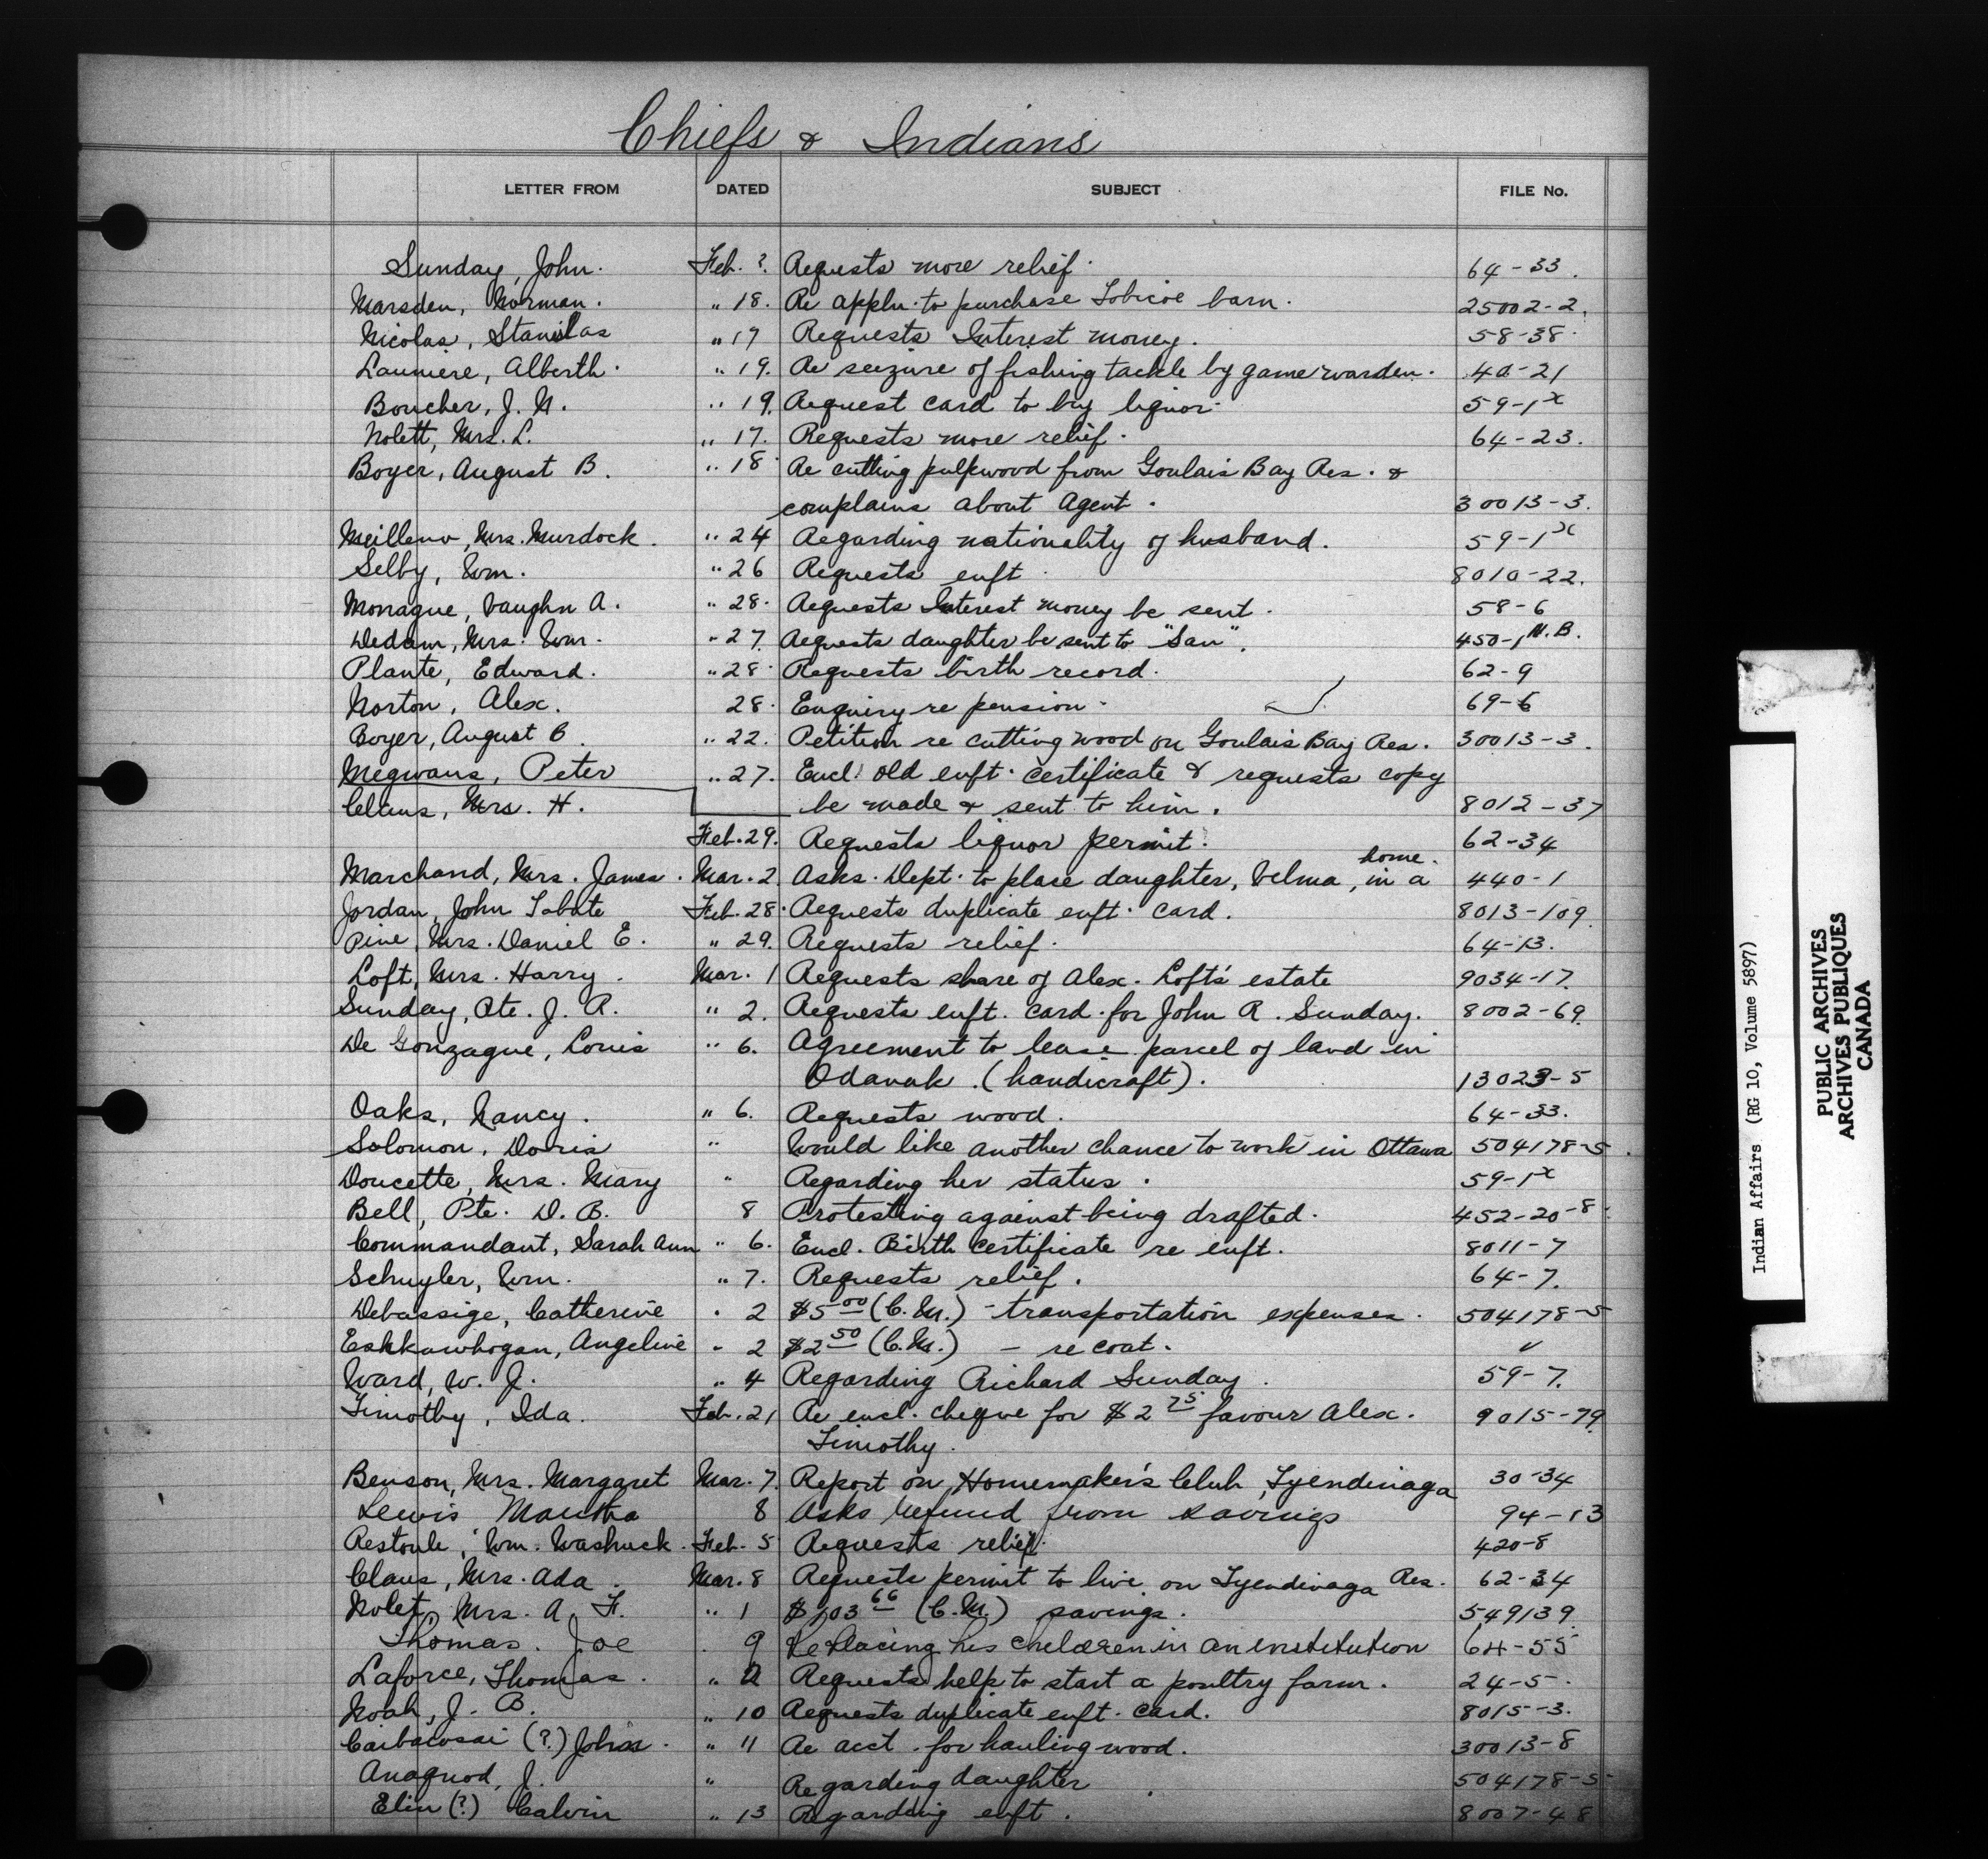 Chiefs & Indians
LETTER FROM DATED SUBJECT FILE No.
Sunday, John. Feb. ?. Requests more relief. 64-33.
Marsden, Norman. " 18. Re appln. to purchase Tobicoe barn. 25002-2.
Nicolas, Stanislas " 17 Requests Interest money. 58-38.
Launiere, Alberth. " 19. Re seizure of fishing tackle by game warden. 40-21
Boucher, J. N. " 19. Request card to buy liquor. 59-1x
Nolett, Mrs. L. " 17. Requests more relief. 64-23.
Boyer, August B. " 18. Re cutting pulpwood from Goulais Bay Res. &
complains about Agent. 30013-3.
Mrs. Murdock. " 24 Regarding nationality of husband. 59-1x
Selby, Wm. " 26 Requests enft. 8010-22.
Monague, Vaughn A. " 28. Requests Interest money be sent. 58-6
Dedam, Mrs. Wm. " 27. Requests daughter be sent to "San". 450-1 N.B.
Plante, Edward. " 28. Requests birth record. 62-9
Norton, Alex. 28. Enquiry re pension. 69-6
Boyer, August B. " 22. Petition re cutting wood on Goulais Bay Res. 30013-3.
Megwans, Peter " 27. Encl. old enft. certificate & requests copy
Claus, Mrs. H. be made & sent to him. 8012-37
Feb. 29. Requests liquor permit. 62-34
home.
Marchand, Mrs. James. Mar. 2. Asks Dept. to place daughter, Velma, in a 440-1
Jordan, John Tobate Feb. 28. Requests duplicate enft. card. 8013-109.
Pine, Mrs. Daniel E. " 29. Requests relief. 64-13.
Loft, Mrs. Harry. Mar. 1 Requests share of Alex. Loft's estate 9034-17.
Sunday, Pte. J. R. " 2. Requests enft. card for John R. Sunday. 8002-69.
De Gonzague, Louis " 6. Agreement to lease parcel of land in
Odanak. (handicraft). 13023-5
Oaks, Nancy. " 6. Requests wood. 64-33.
Solomon, Doris " Would like another chance to work in Ottawa 504178-5.
Doucette, Mrs. Mary " Regarding her status. 59-1x
Bell, Pte. D. B. 8 Protesting against being drafted. 452-20-8.
Commandant, Sarah Ann " 6. Encl. Birth certificate re enft. 8011-7
Schuyler, Wm. " 7. Requests relief. 64-7.
Debassige, Catherine " 2 $5.00 (C.M.) - transportation expenses. 504178-5
Eshkawkogan, Angeline " 2 $2.50 (C.M.) - re coat. "
Ward, W. J. " 4 Regarding Richard Sunday. 59-7.
Timothy, Ida. Feb. 21 Re encl. cheque for $2.75 favour Alex.
Timothy.
Benson, Mrs. Margaret Mar. 7. Report on Homemaker's Club, Tyendinaga 30-34
9015-79.
Lewis Martha 8 Asks refund from savings 94-13
Restoule, Wm. Washuck. Feb. 5 Requests relief. 420-8
Claus, Mrs. Ada. Mar. 8 Requests permit to live on Tyendinaga Res. 62-34
Nolet, Mrs. A. F. " 1 $103.66 (C.M.) savings. 549139.
Thomas. Joe 9 Re Placing his children in an institution 64-55
Laforce, Thomas. " Requests help to start a poultry farm. 24-5.
Noah, J. B. " 10 Requests duplicate enft. card. 8015-3.
Caibaiosai (?) John. " 11 Re acct. for hauling wood. 30013-8
Anaquod, J. " Regarding daughter 504178-5
Elm (?) Calvin " 13 Regarding enft. 8007-48
Indian Affairs (RG 10, Volume 5897)
PUBLIC ARCHIVES
ARCHIVES PUBLIQUES
CANADA